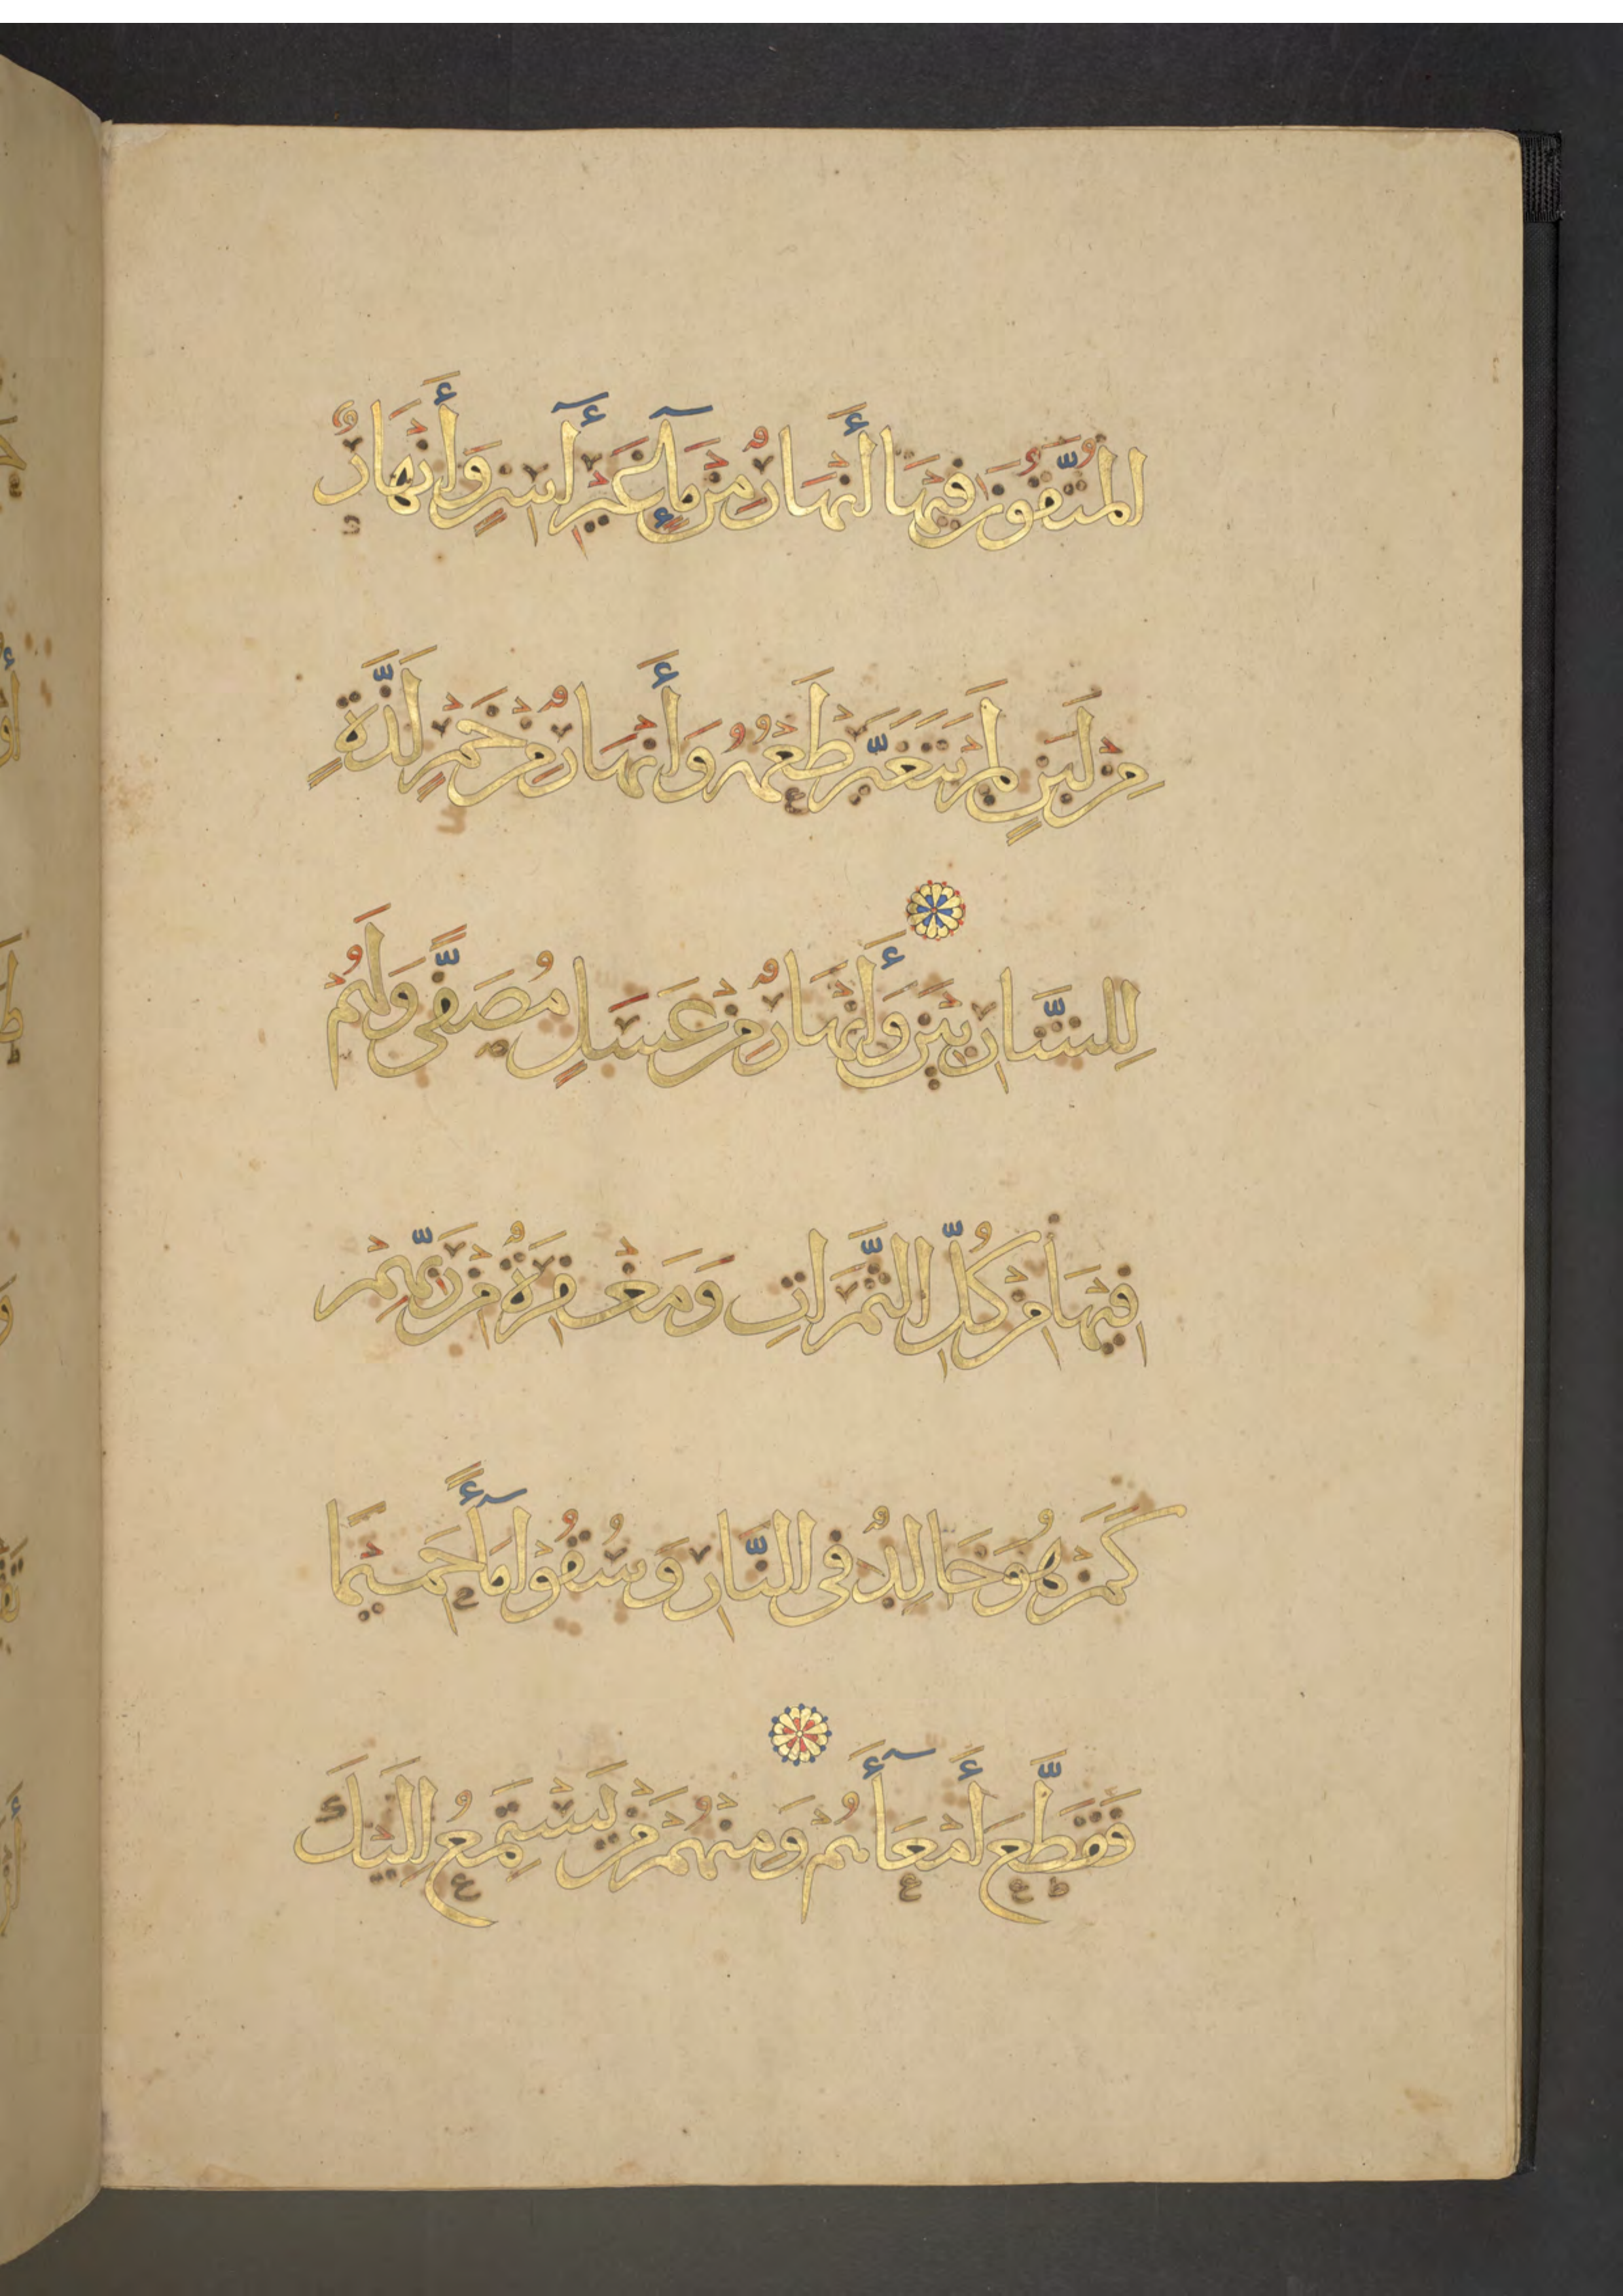 الْمُتَّقُونَ فِيهَا أَنْهَارٌ مِنْ مَآءٍ غَيْرِ آسِنٍ وَأَنْهَارٌ
مِنْ لَبَنٍ لَمْ يَتَغَيَّرْ طَعْمُهُ وَأَنْهَارٌ مِنْ خَمْرٍ لَذَّةٍ
لِلشَّارِبِينَ وَأَنْهَارٌ مِنْ عَسَلٍ مُصَفًّى وَلَهُمْ
فِيهَا مِنْ كُلِّ الثَّمَرَاتِ وَمَغْفِرَةٌ مِنْ رَبِّهِمْ
كَمَنْ هُوَ خَالِدٌ فِى النَّارِ وَسُقُوا مَآءً حَمِيمًا
فَقَطَّعَ أَمْعَآءَهُمْ وَمِنْهُمْ مَنْ يَسْتَمِعُ إِلَيْكَ